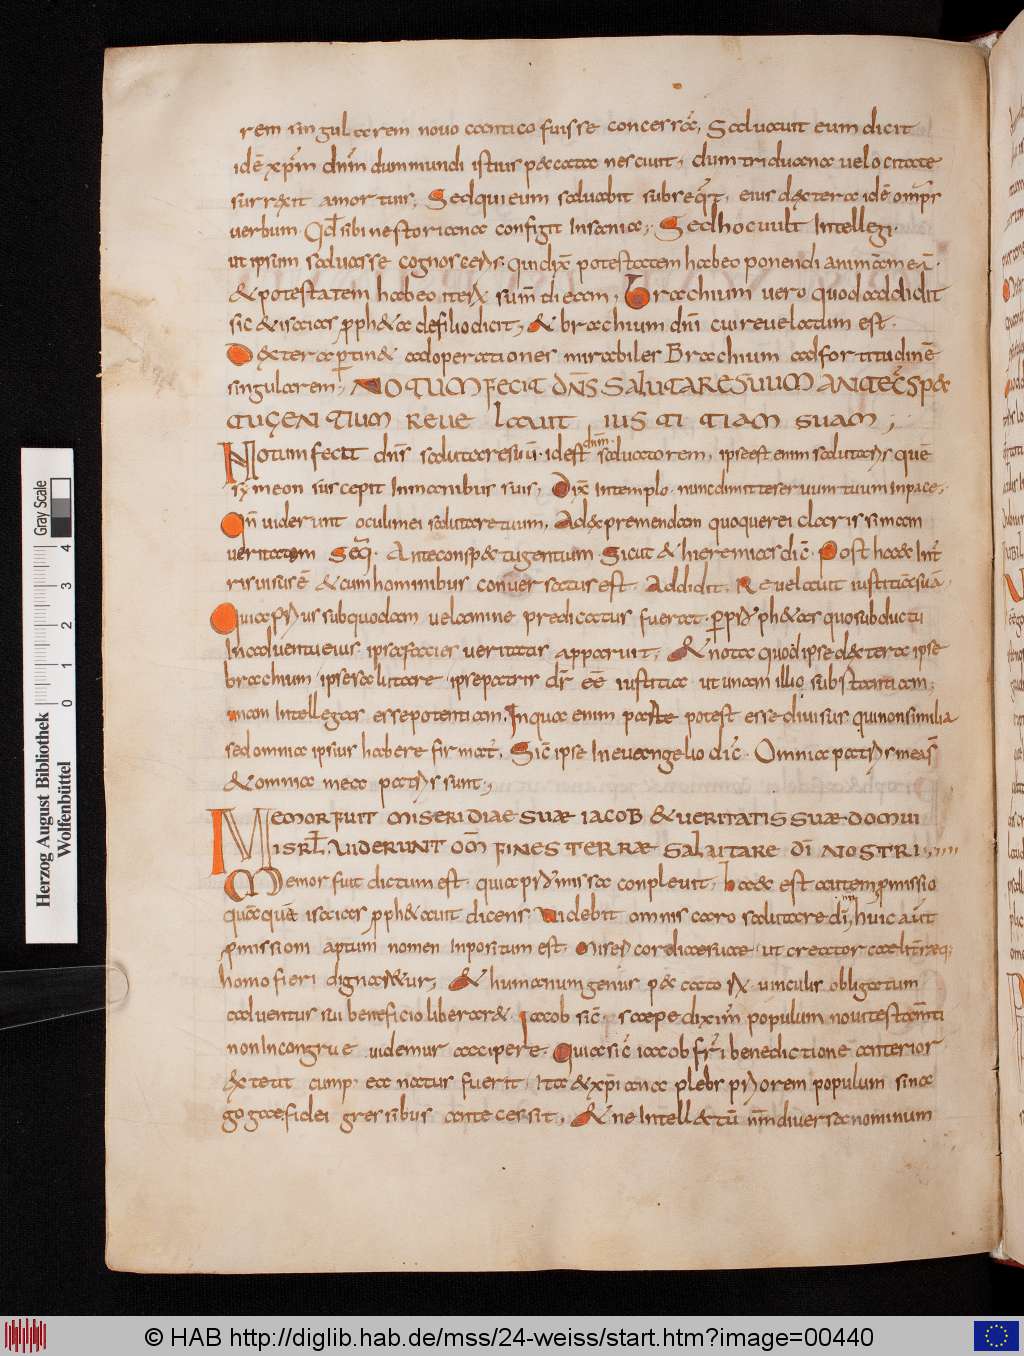 rem singularem novo cantico fuisse concessā, Salvavit eum dicit
idē xp̄m dn̄m dum mundi istius peccata nescivit, dum triduana velocitate
surrexit a mortuis, Sed qui eum salvabit subseq̄t, eius dextera idē om̄ps
verbum. Qđ sibi nestoriana configit insania, Sed hoc vult intellegi.
ut ipsum salvasse cognosceris. qui dix̄ potestatem habeo ponendi animam meā.
& potestatem habeo iterū sum̄di eam, Brachium vero quod addidit
sic & isaias p̄ph&a de filio dicit, & brachium dn̄i cui revelatum est.
Dextera ptin& ad operationes mirabiles Brachium ad fortitudinē
singularem, NOTUM FECIT DN̄S SALUTARE SUUM ANTE C̄SPEC
TU GENTIUM REVELAVIT IUSTITIAM SUAM;
Notum fecit dn̄s salutare suū. id est dn̄m salvatorem, ipse est enim salutaris quē
symeon suscepit in manibus suis, Dix̄ in templo. nunc dimittes servum tuum in pace,
Qn̄ viderunt oculi mei salutare tuum, Ad exprimendam quoque rei clarissimam
veritatem Seq̄. Ante conspectu gentium Sicut & hieremias dic̄. Post haec int̄
ris visus ē & cum hominibus conversatus est. Addidit. Revelavit iustitiā suā.
Quia prius sub quodam velamine predicatus fuerat. per proph&as quos ubductu
In adventu eius ipsa facies veritatis apparuit, & nota quod ipse dextera ipse
brachium ipse salutare ipse patris dr̄ eē iustitia ut unam illis substantiam,
unam Intellegas esse potentiam. In qua enim parte potest esse divisus qui non similia
sed omnia ipsius habere firmat̄, Sic̄ ipse In evangelio dic̄. Omnia patris mea s̄
& omnia mea patris sunt,
MEMOR FUIT MISERIDIAE SUAE IACOB & VERITATIS SUAE DOMUI
ISRL̄. VIDERUNT OM̄ FINES TERRAE SALUTARE DĪ NOSTRI,
Memor fuit dictum est. quia promissa conplevit. haec est autem promissio
quā quē isaias p̄ph&avit dicens Videbit omnis caro salutare dī, huic aūt
p̄missioni aptum nomen Inpositum est. Misericordiae suae. ut creator caeli terraeq;
homo fieri dignar&ur, & humanum genus peccatorū vinculis obligatum
adventus sui beneficio liberar&. Iacob sic̄. saepe diximꝰ populum novi testam̄ti
non Incongrue videmur accipere. Quia sic̄ iacob fr̄i benedictione anterior
extetit cum p. ea natus fuerit, ita & xp̄iana plebs priorem populum sina
gogae fidei gressibus antecessit, & ne Intellectū nm̄ diversa nominum
Herzog August Bibliothek
Wolfenbüttel
Gray Scale
0 1 2 3 4
© HAB http://diglib.hab.de/mss/24-weiss/start.htm?image=00440